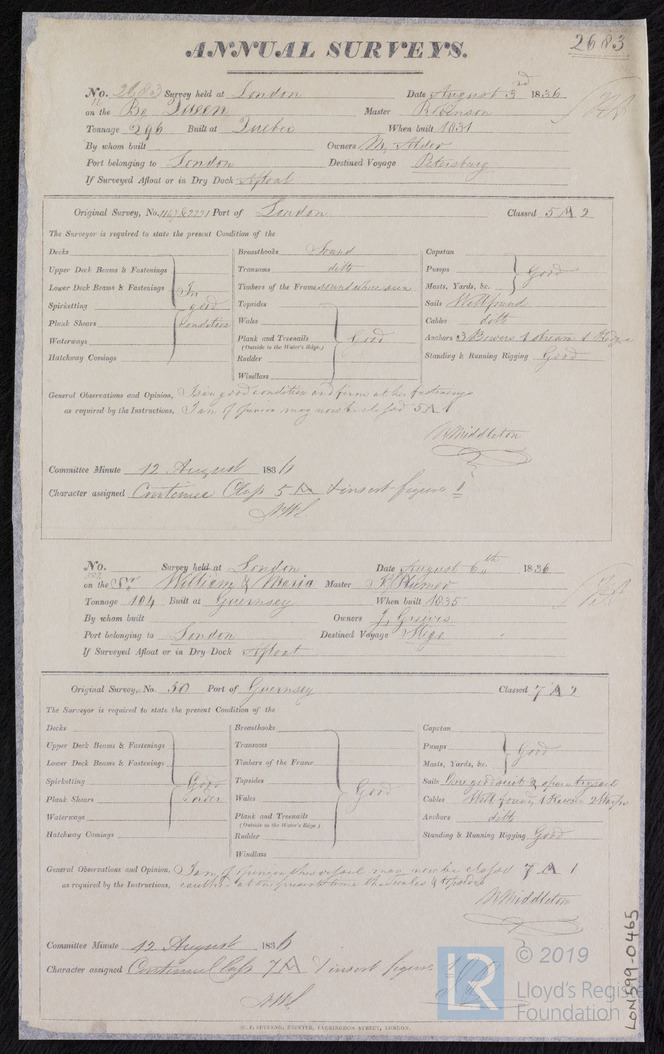 2683
ANNUAL SURVEYS.
No. 2683 Survey held at London Date August 3rd 1836
on the Bg Queen Master Robinson
Tonnage 296 Built at Quebec When built 1831
By whom built Owners Mr Alder
Port belonging to London Destined Voyage Petersburg
If Surveyed Afloat or in Dry Dock Afloat
Original Survey, No. 1167 & 2221 Port of London Classed 5 A 2
The Surveyor is required to state the present Condition of the
Decks
Upper Deck Beams & Fastenings
Lower Deck Beams & Fastenings
Spirketting
Plank Shears
Waterways
Hatchway Comings
In good Condition
Breasthooks Sound
Transoms ditto
Timbers of the Frame sound where seen
Topsides
Wales
Plank and Treenails
(Outside to the Water's Edge.)
Rudder
Windlass
Good
Capstan
Pumps
Masts, Yards, &c.
Good
Sails Well found
Cables ditto
Anchors 3 Bowers 1 stream 1 Kedge
Standing & Running Rigging Good
General Observations and Opinion, Is in good condition and firm at her fastenings
as required by the Instructions, I am of opinion may now be classed 5 A 1
W Middleton
Committee Minute 12 August 1836
Character assigned Continue Class 5 A & insert figure 1
No. Survey held at London Date August 6th 1836
on the Sr William & Maria Master P. Plumer
Tonnage 104 Built at Guernsey When built 1835
By whom built Owners J. Greves
Port belonging to London Destined Voyage
If Surveyed Afloat or in Dry Dock Afloat
Original Survey, No. 50 Port of Guernsey Classed 7 A 2
The Surveyor is required to state the present Condition of the
Decks
Upper Deck Beams & Fastenings
Lower Deck Beams & Fastenings
Spirketting
Plank Shears
Waterways
Hatchway Comings
Good order
Breasthooks
Transoms
Timbers of the Frame
Topsides
Wales
Plank and Treenails
(Outside to the Water's Edge.)
Rudder
Windlass
Good
Capstan
Pumps
Masts, Yards, &c.
Good
Sails One good suit &
Cables Well found
Anchors ditto
Standing & Running Rigging Good
General Observations and Opinion, I am of opinion this vessel may now be classed 7 A 1
as required by the Instructions, caulked at the present time the wales & topsides
W Middleton
Committee Minute 12 August 1836
Character assigned Continued Class 7 A & insert figure 1
LR
© 2019
Lloyd's Register
Foundation
LON599-0465
PRINTER, FARRINGDON STREET, LONDON.